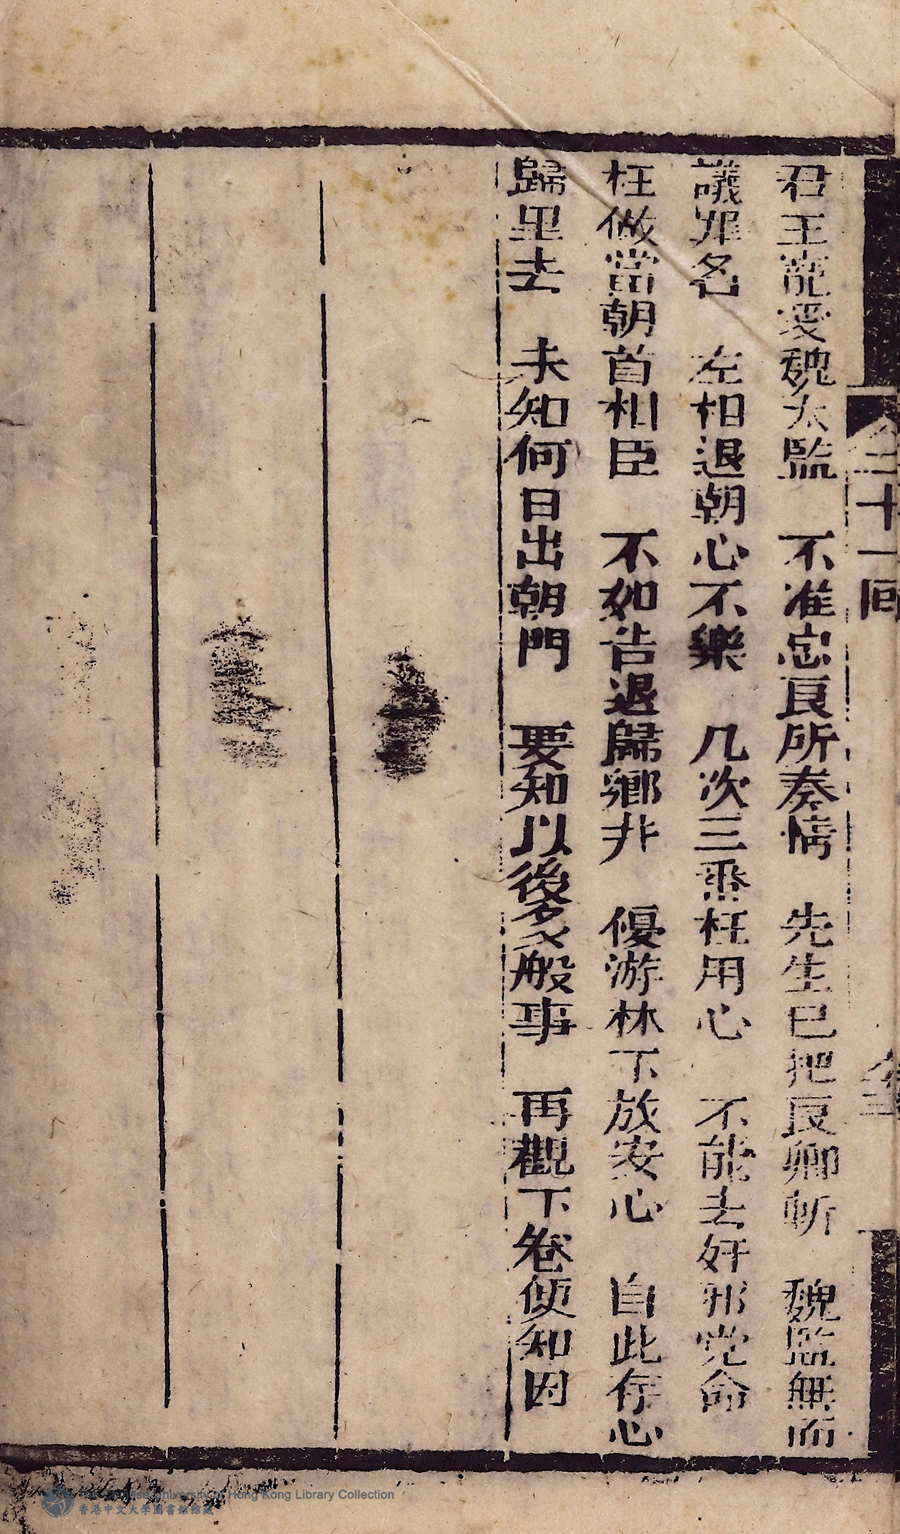 二十一回
卷三
君王寵愛魏太監　不准忠良所奏情　先生已把良卿斬　魏監無而
議罪名　左相退朝心不樂　几次三番枉用心　不能去奸邪党命
枉做當朝首相臣　不如告退歸鄉井　優游林下放安心　自此存心
歸里去　未知何日出朝門　要知以後多般事　再觀下卷便知因
Hong Kong Library Collection
香港中文大學圖書館館藏